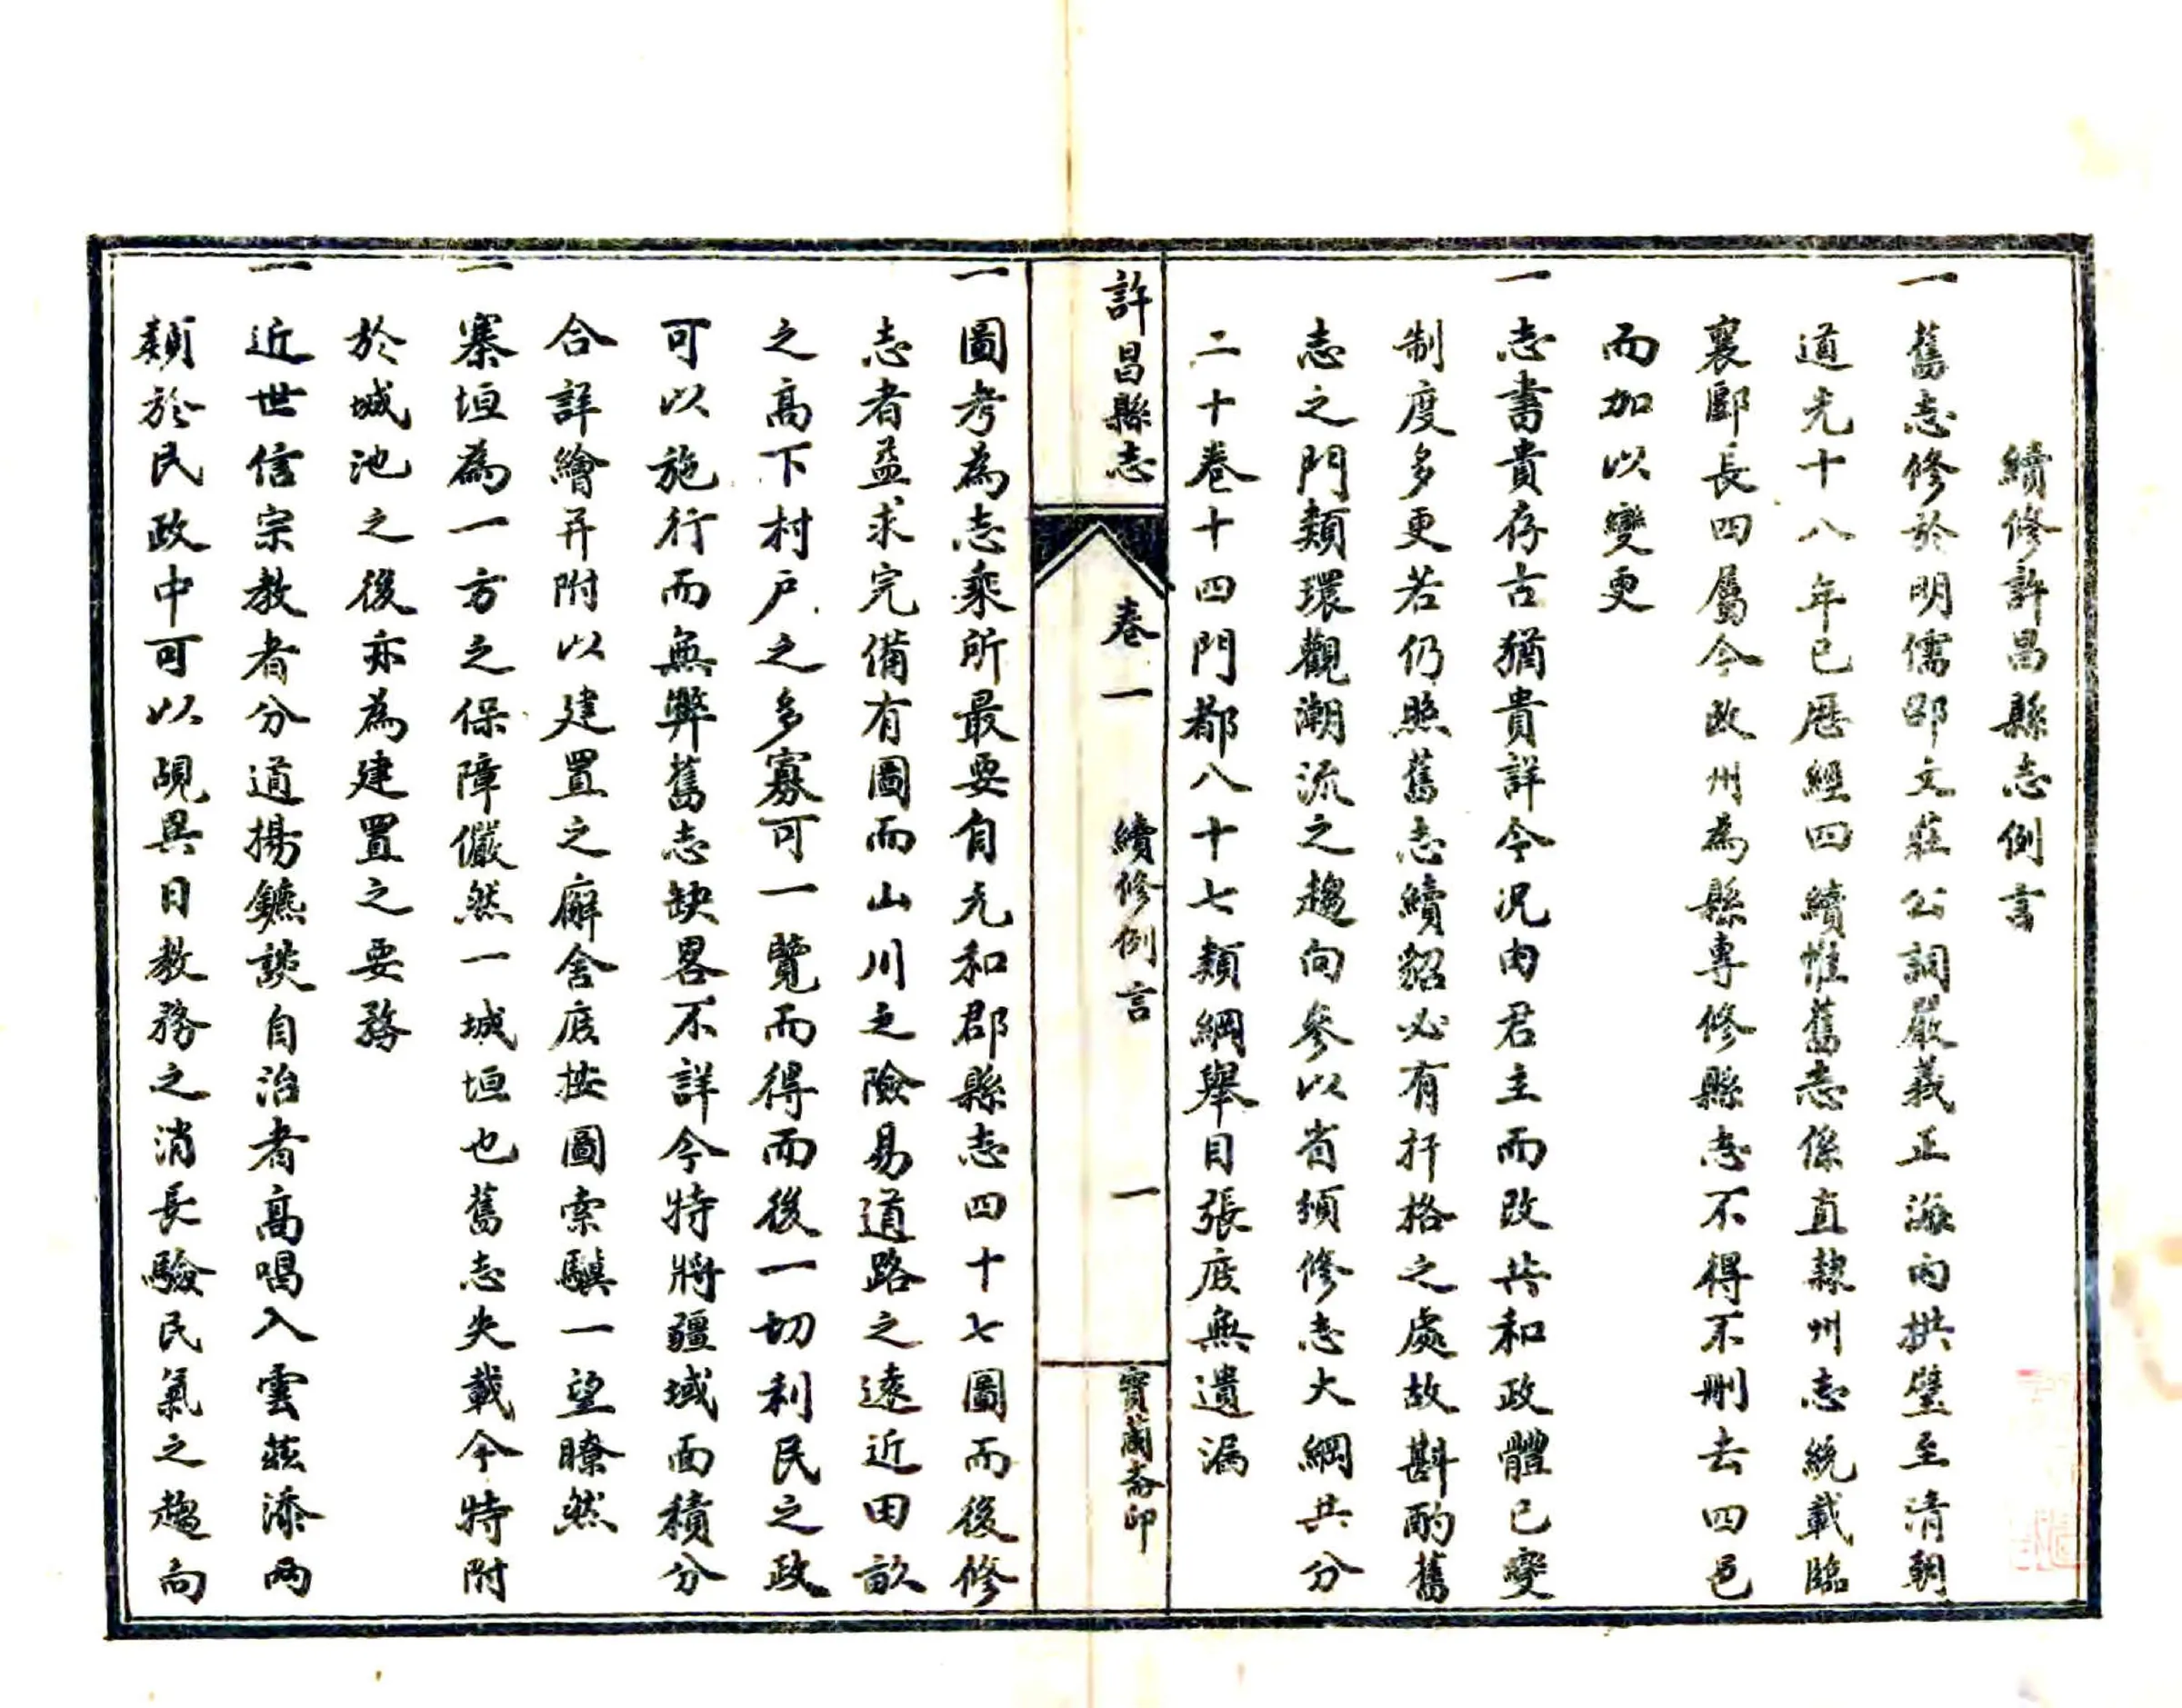 續修許昌縣志例言
一舊志修於明儒邵文莊公詞嚴義正海內拱璧至清朝
道光十八年已歷經四續惟舊志係直隸州志統載臨
襄郾長四屬今改州為縣專修縣志不得不刪去四邑
而加以變更
一志書貴存古猶貴詳今況由君主而改共和政體已變
制度多更若仍照舊志續貂必有扞格之處故斟酌舊
志之門類環觀潮流之趨向參以省頒修志大綱共分
二十卷十四門都八十七類綱舉目張底無遺漏
許昌縣志
卷一
續修例言
一
寶蘭齋印
一圖考為志乘所最要自元和郡縣志四十七圖而後修
志者益求完備有圖而山川之險易道路之遠近田畝
之高下村户之多寡可一覽而得而後一切利民之政
可以施行而無弊舊志缺畧不詳今特將疆域面積分
合詳繪并附以建置之廨舍底按圖索驥一望瞭然
一寨垣為一方之保障儼然一城垣也舊志失載今特附
於城池之後亦為建置之要務
一近世信宗教者分道揚鑣談自治者高唱入雲茲添兩
類於民政中可以覘異日教務之消長驗民氣之趨向